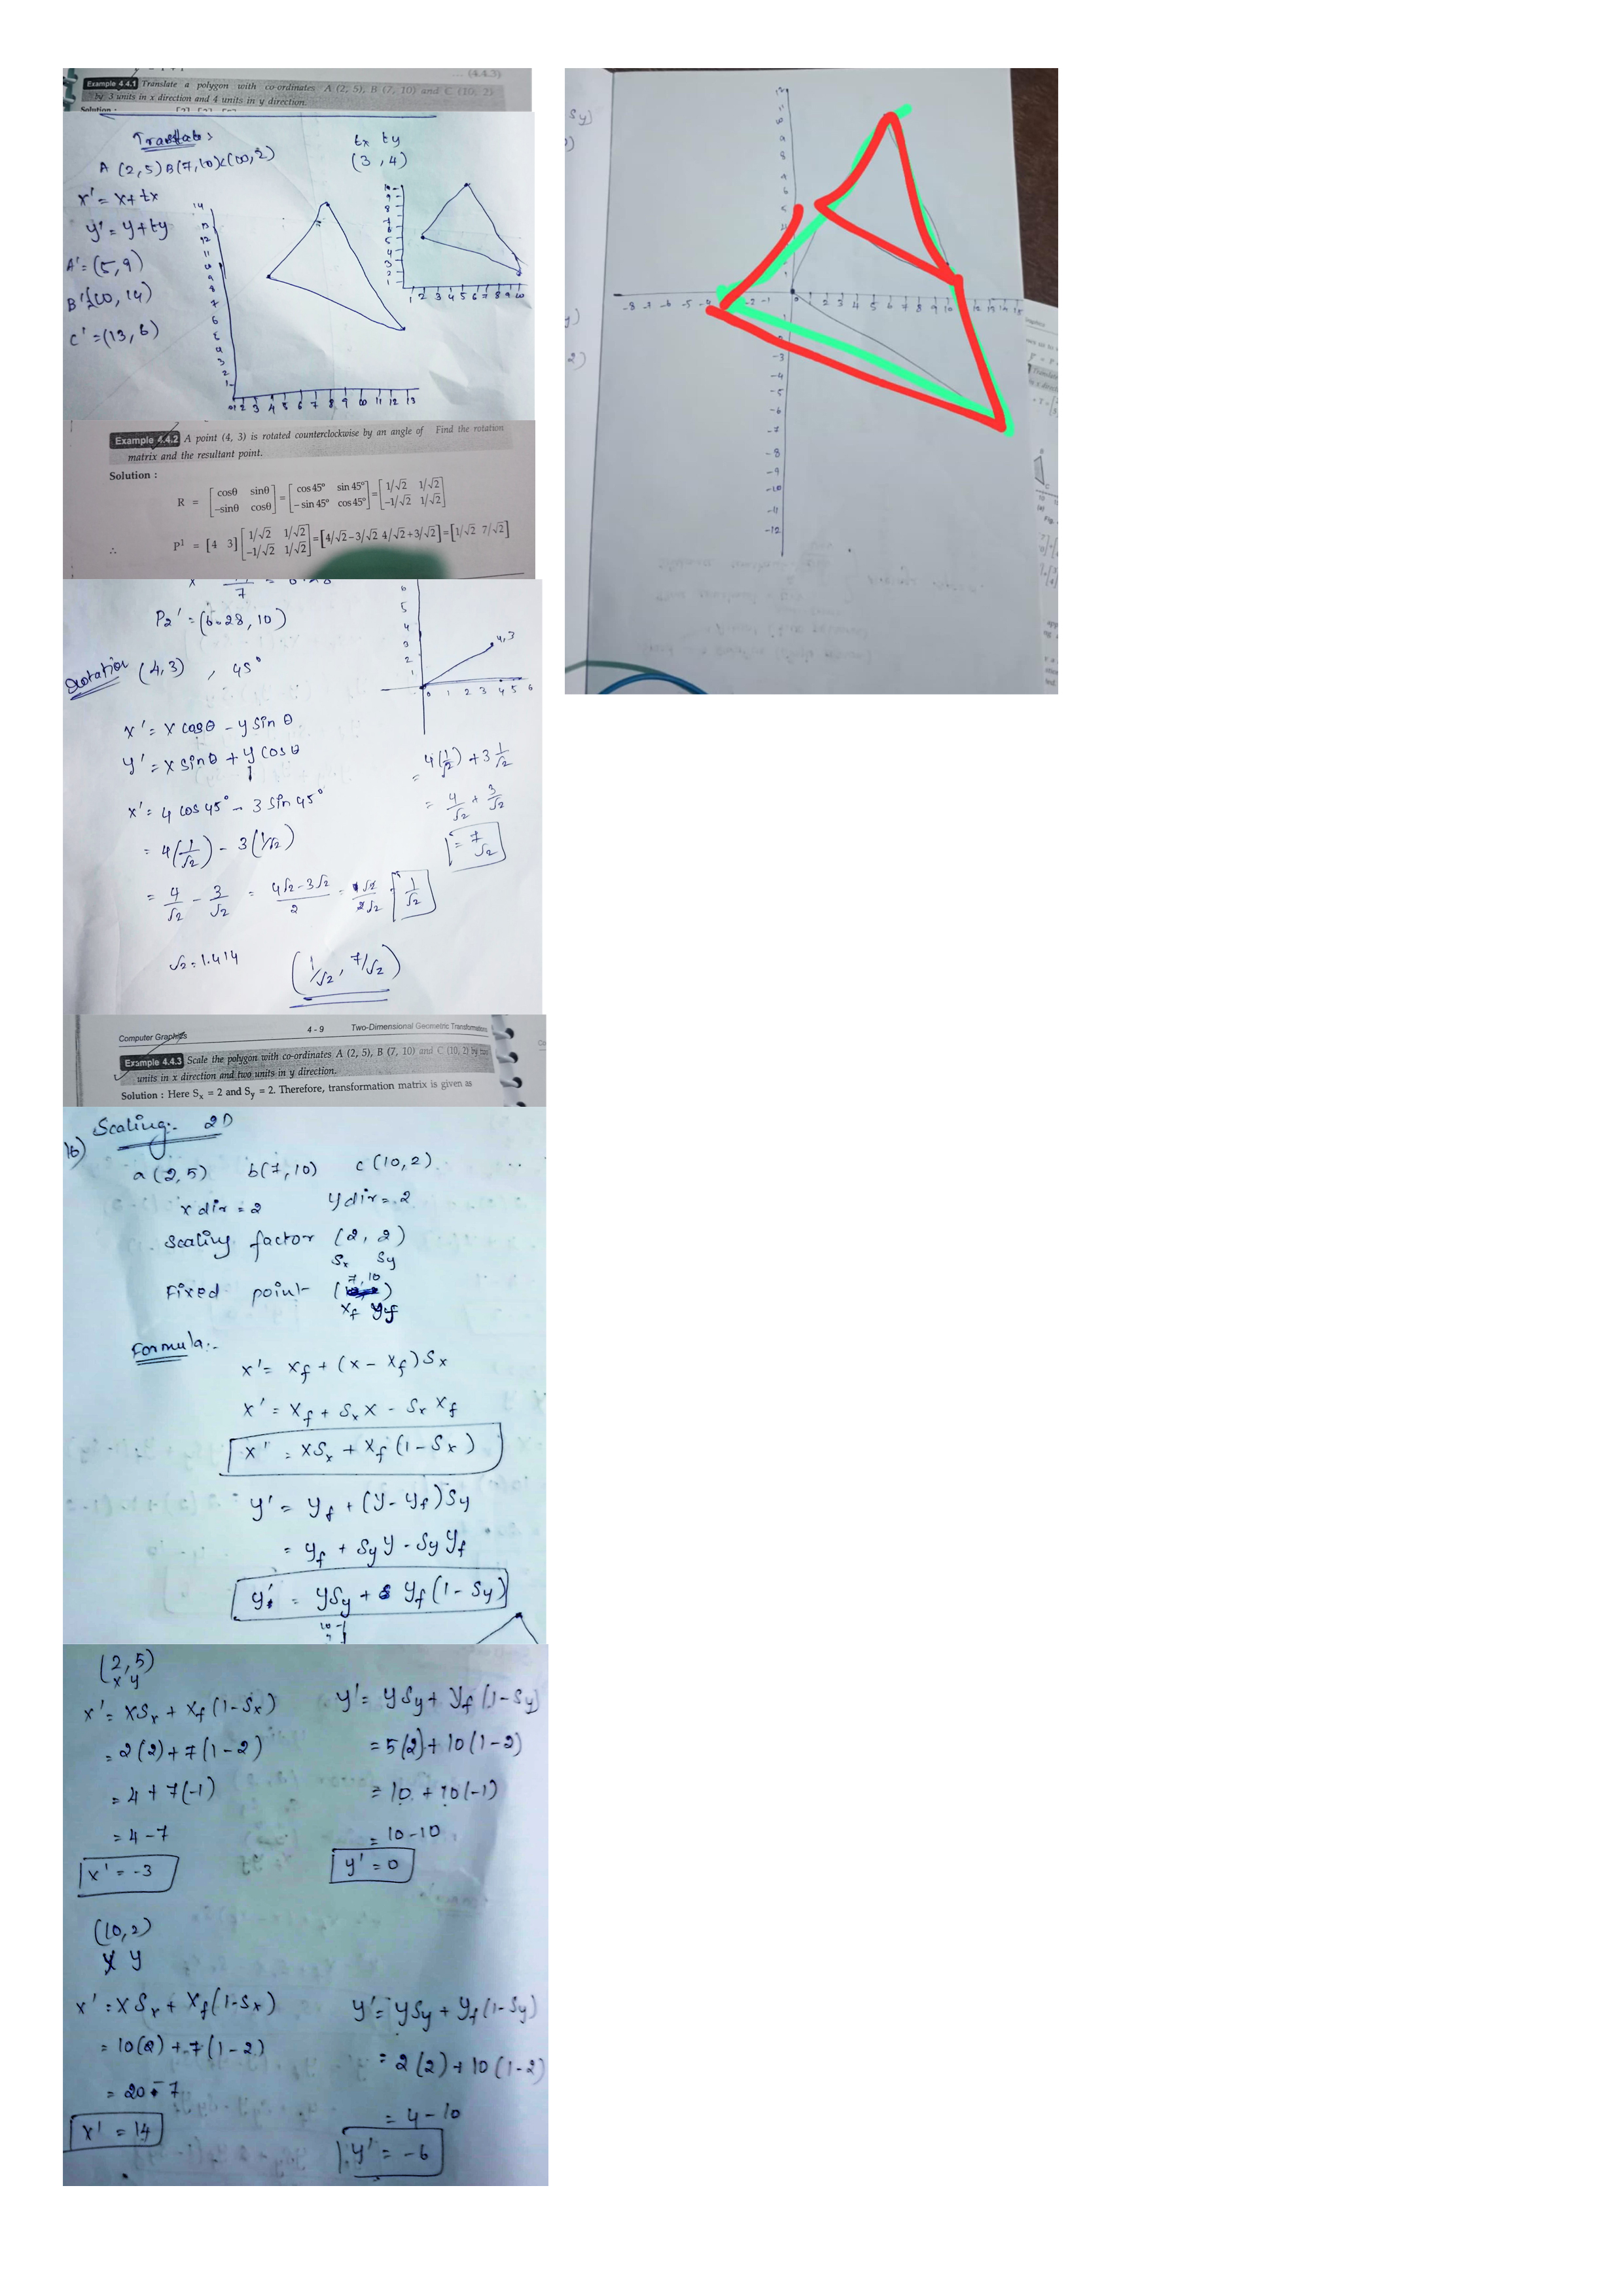 Example 4.4.1 Translate a polygon with co-ordinates A (2, 5), B (7, 10) and C (10, 2)
by 3 units in x direction and 4 units in y direction.
Solution :
tx ty
A (2,5) B(7,10) C(10,2) (3 , 4)
x' = x + tx
y' = y + ty
A' = (5, 9)
B' = (10, 14)
C' = (13, 6)
14
13
12
11
10
9
8
7
6
5
4
3
2
1
0 1 2 3 4 5 6 7 8 9 10 11 12 13
10
9
8
7
6
5
4
3
2
1
1 2 3 4 5 6 7 8 9 10
Example 4.4.2 A point (4, 3) is rotated counterclockwise by an angle of Find the rotation
matrix and the resultant point.
Solution :
R = [cosθ sinθ −sinθ cosθ] = [cos 45° sin 45° − sin 45° cos 45°] = [1/√2 1/√2 −1/√2 1/√2]
∴ P¹ = [4 3] [1/√2 1/√2 −1/√2 1/√2] = [4/√2−3/√2 4/√2+3/√2] = [1/√2 7/√2]
7 = 6.28
P2' = (6.28, 10)
Rotation (4,3) , 45°
6
5
4
3
2
1
4,3
0 1 2 3 4 5 6
x' = x cosθ - y sin θ
y' = x sinθ + y cos θ
x' = 4 cos 45° - 3 sin 45°
= 4(1/√2) - 3(1/√2)
= 4/√2 - 3/√2 = 4√2-3√2/2 = 1/√2
= 4(1/√2) + 3 1/√2
= 4/√2 + 3/√2
= 7/√2
√2 = 1.414 (1/√2, 7/√2)
Computer Graphics 4 - 9 Two-Dimensional Geometric Transformations
Example 4.4.3 Scale the polygon with co-ordinates A (2, 5), B (7, 10) and C (10, 2) by two
units in x direction and two units in y direction.
Solution : Here Sx = 2 and Sy = 2. Therefore, transformation matrix is given as
16) Scaling:- 2D
a (2, 5) b(7, 10) c (10, 2)
x dir = 2 y dir = 2
Scaling factor (2, 2)
Sx Sy
Fixed point (7, 10)
xf yf
Formula:-
x' = xf + (x - xf) Sx
x' = xf + Sx x - Sx xf
x' = xSx + xf (1 - Sx)
y' = yf + (y - yf) Sy
= yf + Sy y - Sy yf
y' = ySy + yf (1 - Sy)
10
(2, 5)
x y
x' = xSx + xf (1-Sx) y' = ySy + yf (1-Sy)
= 2(2) + 7(1-2) = 5(2) + 10(1-2)
= 4 + 7(-1) = 10 + 10(-1)
= 4 - 7 = 10 - 10
x' = -3 y' = 0
(10, 2)
x y
x' = xSx + xf (1-Sx) y' = ySy + yf (1-Sy)
= 10(2) + 7(1-2) = 2(2) + 10(1-2)
= 20 - 7 = 4 - 10
x' = 14 y' = -6
-8 -7 -6 -5 -4 -2 -1 0 1 2 3 4 5 6 7 8 9 10 12 13 14 15
-3
-4
-5
-6
-7
-8
-9
-10
-11
-12